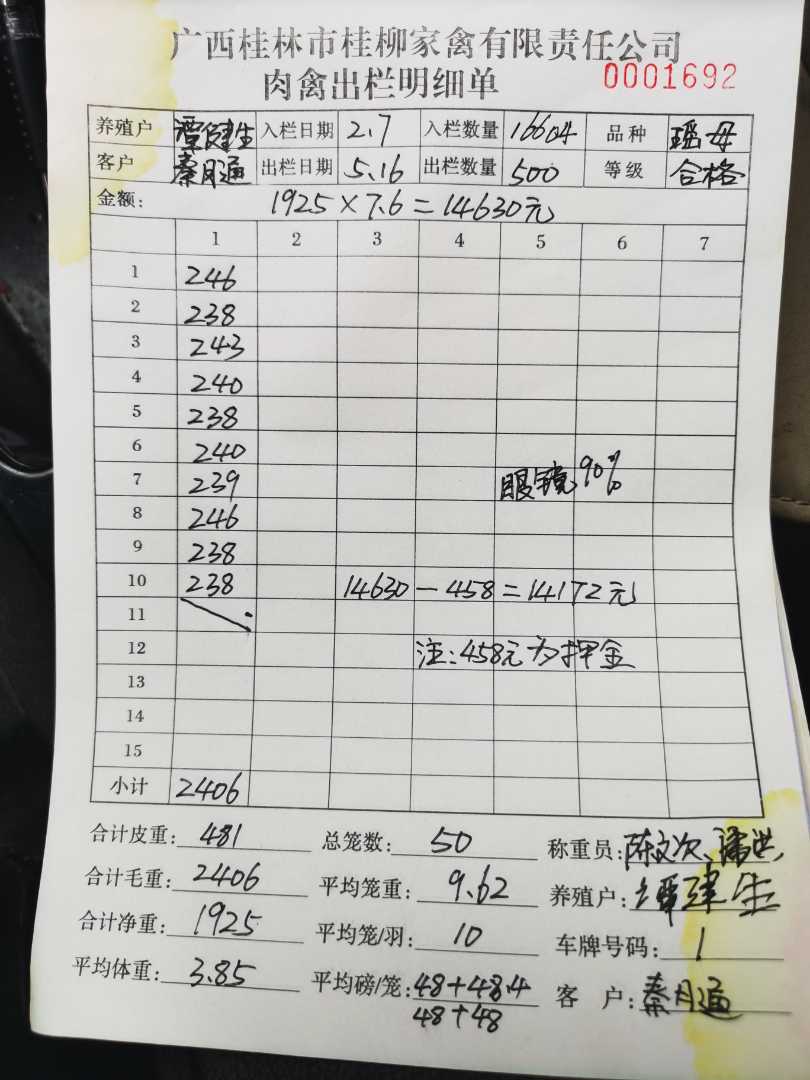 广西桂林市桂柳家禽有限责任公司
肉禽出栏明细单 0001692
养殖户 谭健生 入栏日期 2.7 入栏数量 16604 品种 瑶母
客户 秦月通 出栏日期 5.16 出栏数量 500 等级 合格
金额: 1925×7.6=14630元
1 2 3 4 5 6 7
1 246
2 238
3 243
4 240
5 238
6 240
7 239 眼镜90%
8 246
9 238
10 238 14630-458=14172元
11
12 注:458元为押金
13
14
15
小计 2406
合计皮重: 481 总笼数: 50 称重员: 陈文次、潘洪
合计毛重: 2406 平均笼重: 9.62 养殖户: 谭建生
合计净重: 1925 平均笼/羽: 10 车牌号码: 1
平均体重: 3.85 平均磅/笼: 48+48.4 客 户: 秦月通
48+48